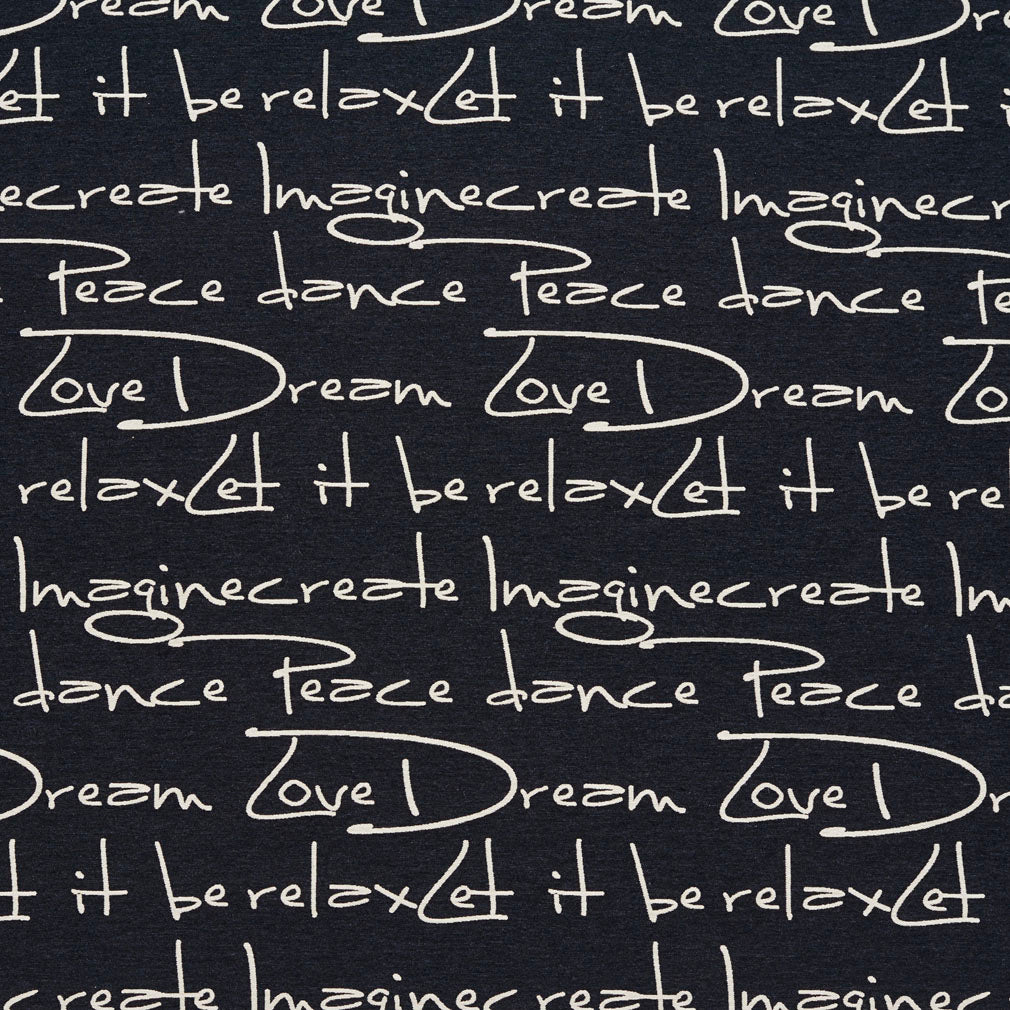 Dream Love Dream Love Dre
Let it be relax Let it be relax Let i
ecreate Imagine create Imagine cr
Peace dance Peace dance Pe
Love Dream Love Dream Lo
relax Let it be relax Let it be re
Imagine create Imagine create Im
dance Peace dance Peace da
Dream Love Dream Love Dr
Let it be relax Let it be relax Let
create Imagine create Imagine c